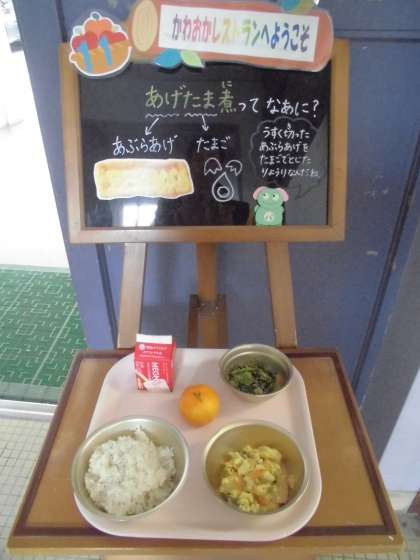 11
かわおかレストランへようこそ
あげたま煮って なあに?
に
あぶらあげ
たまご
うすく切った
あぶらあげを
たまごでとじた
りょうりなんだね。